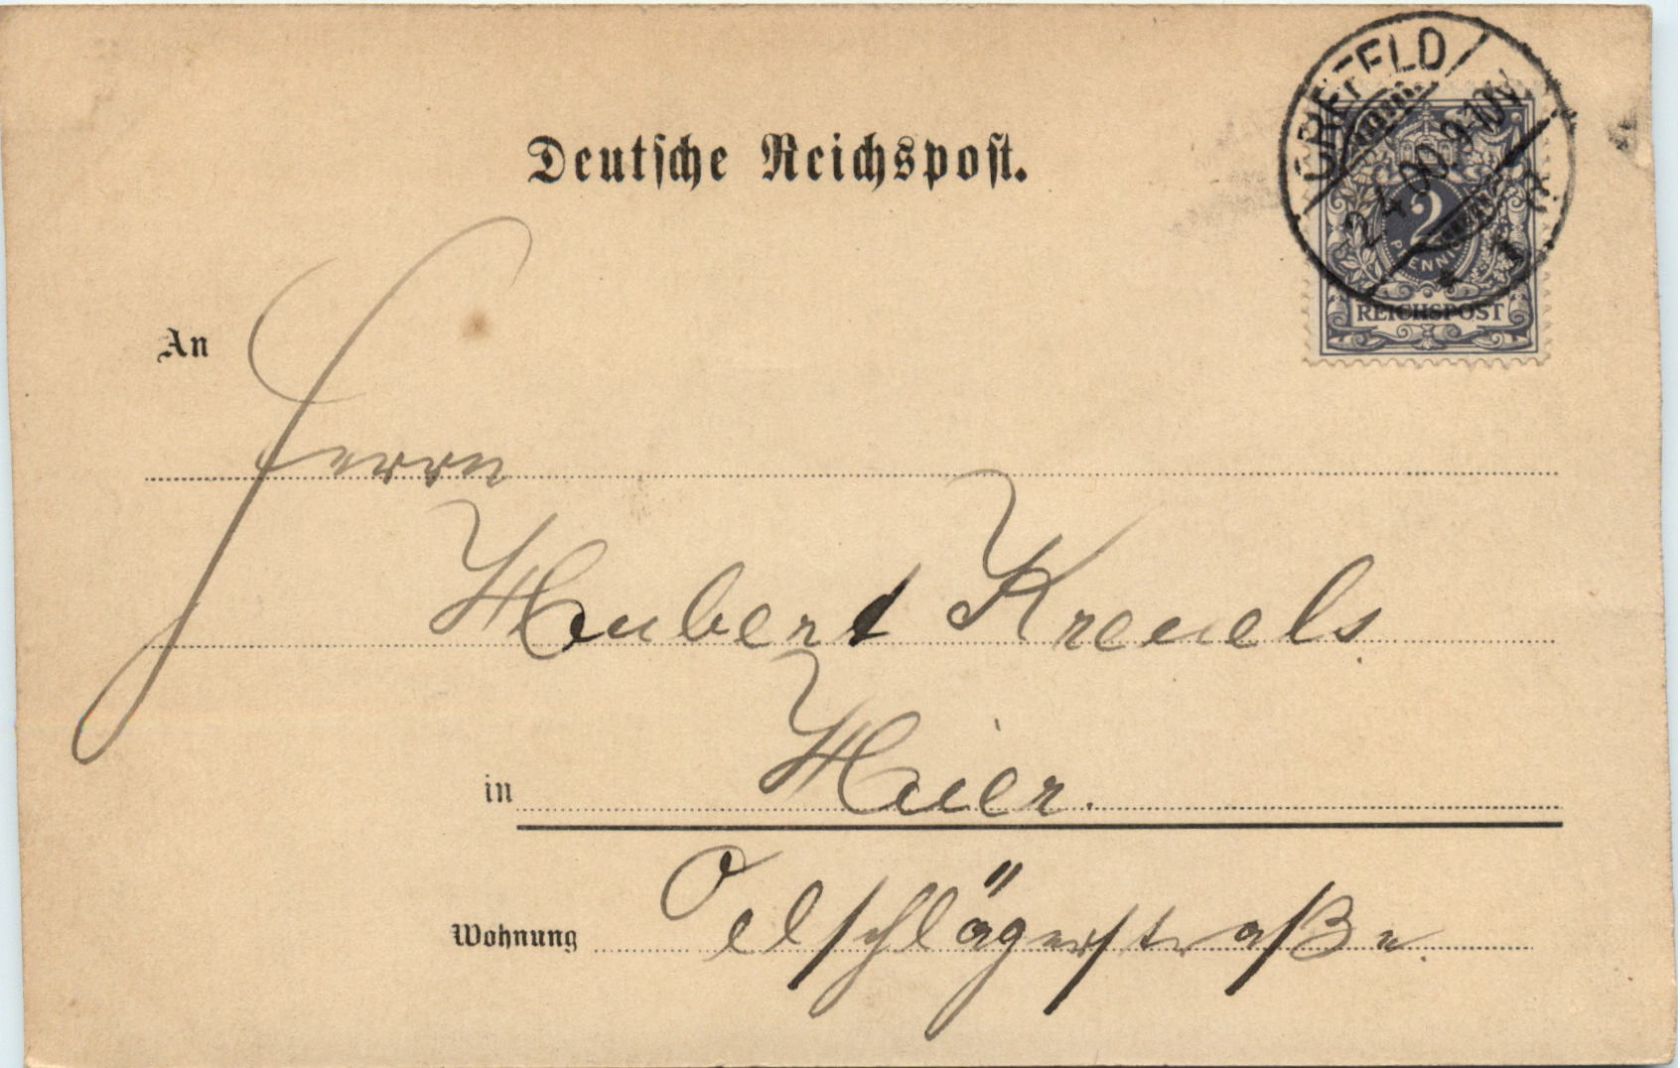 Deutsche Reichspost.
CREFELD
2.4.00.9-10V.
* 1
2
PFENNIG
REICHSPOST
An
Herrn
Hubert Kreuels
in Hier.
Wohnung Oelschlägerstraße.